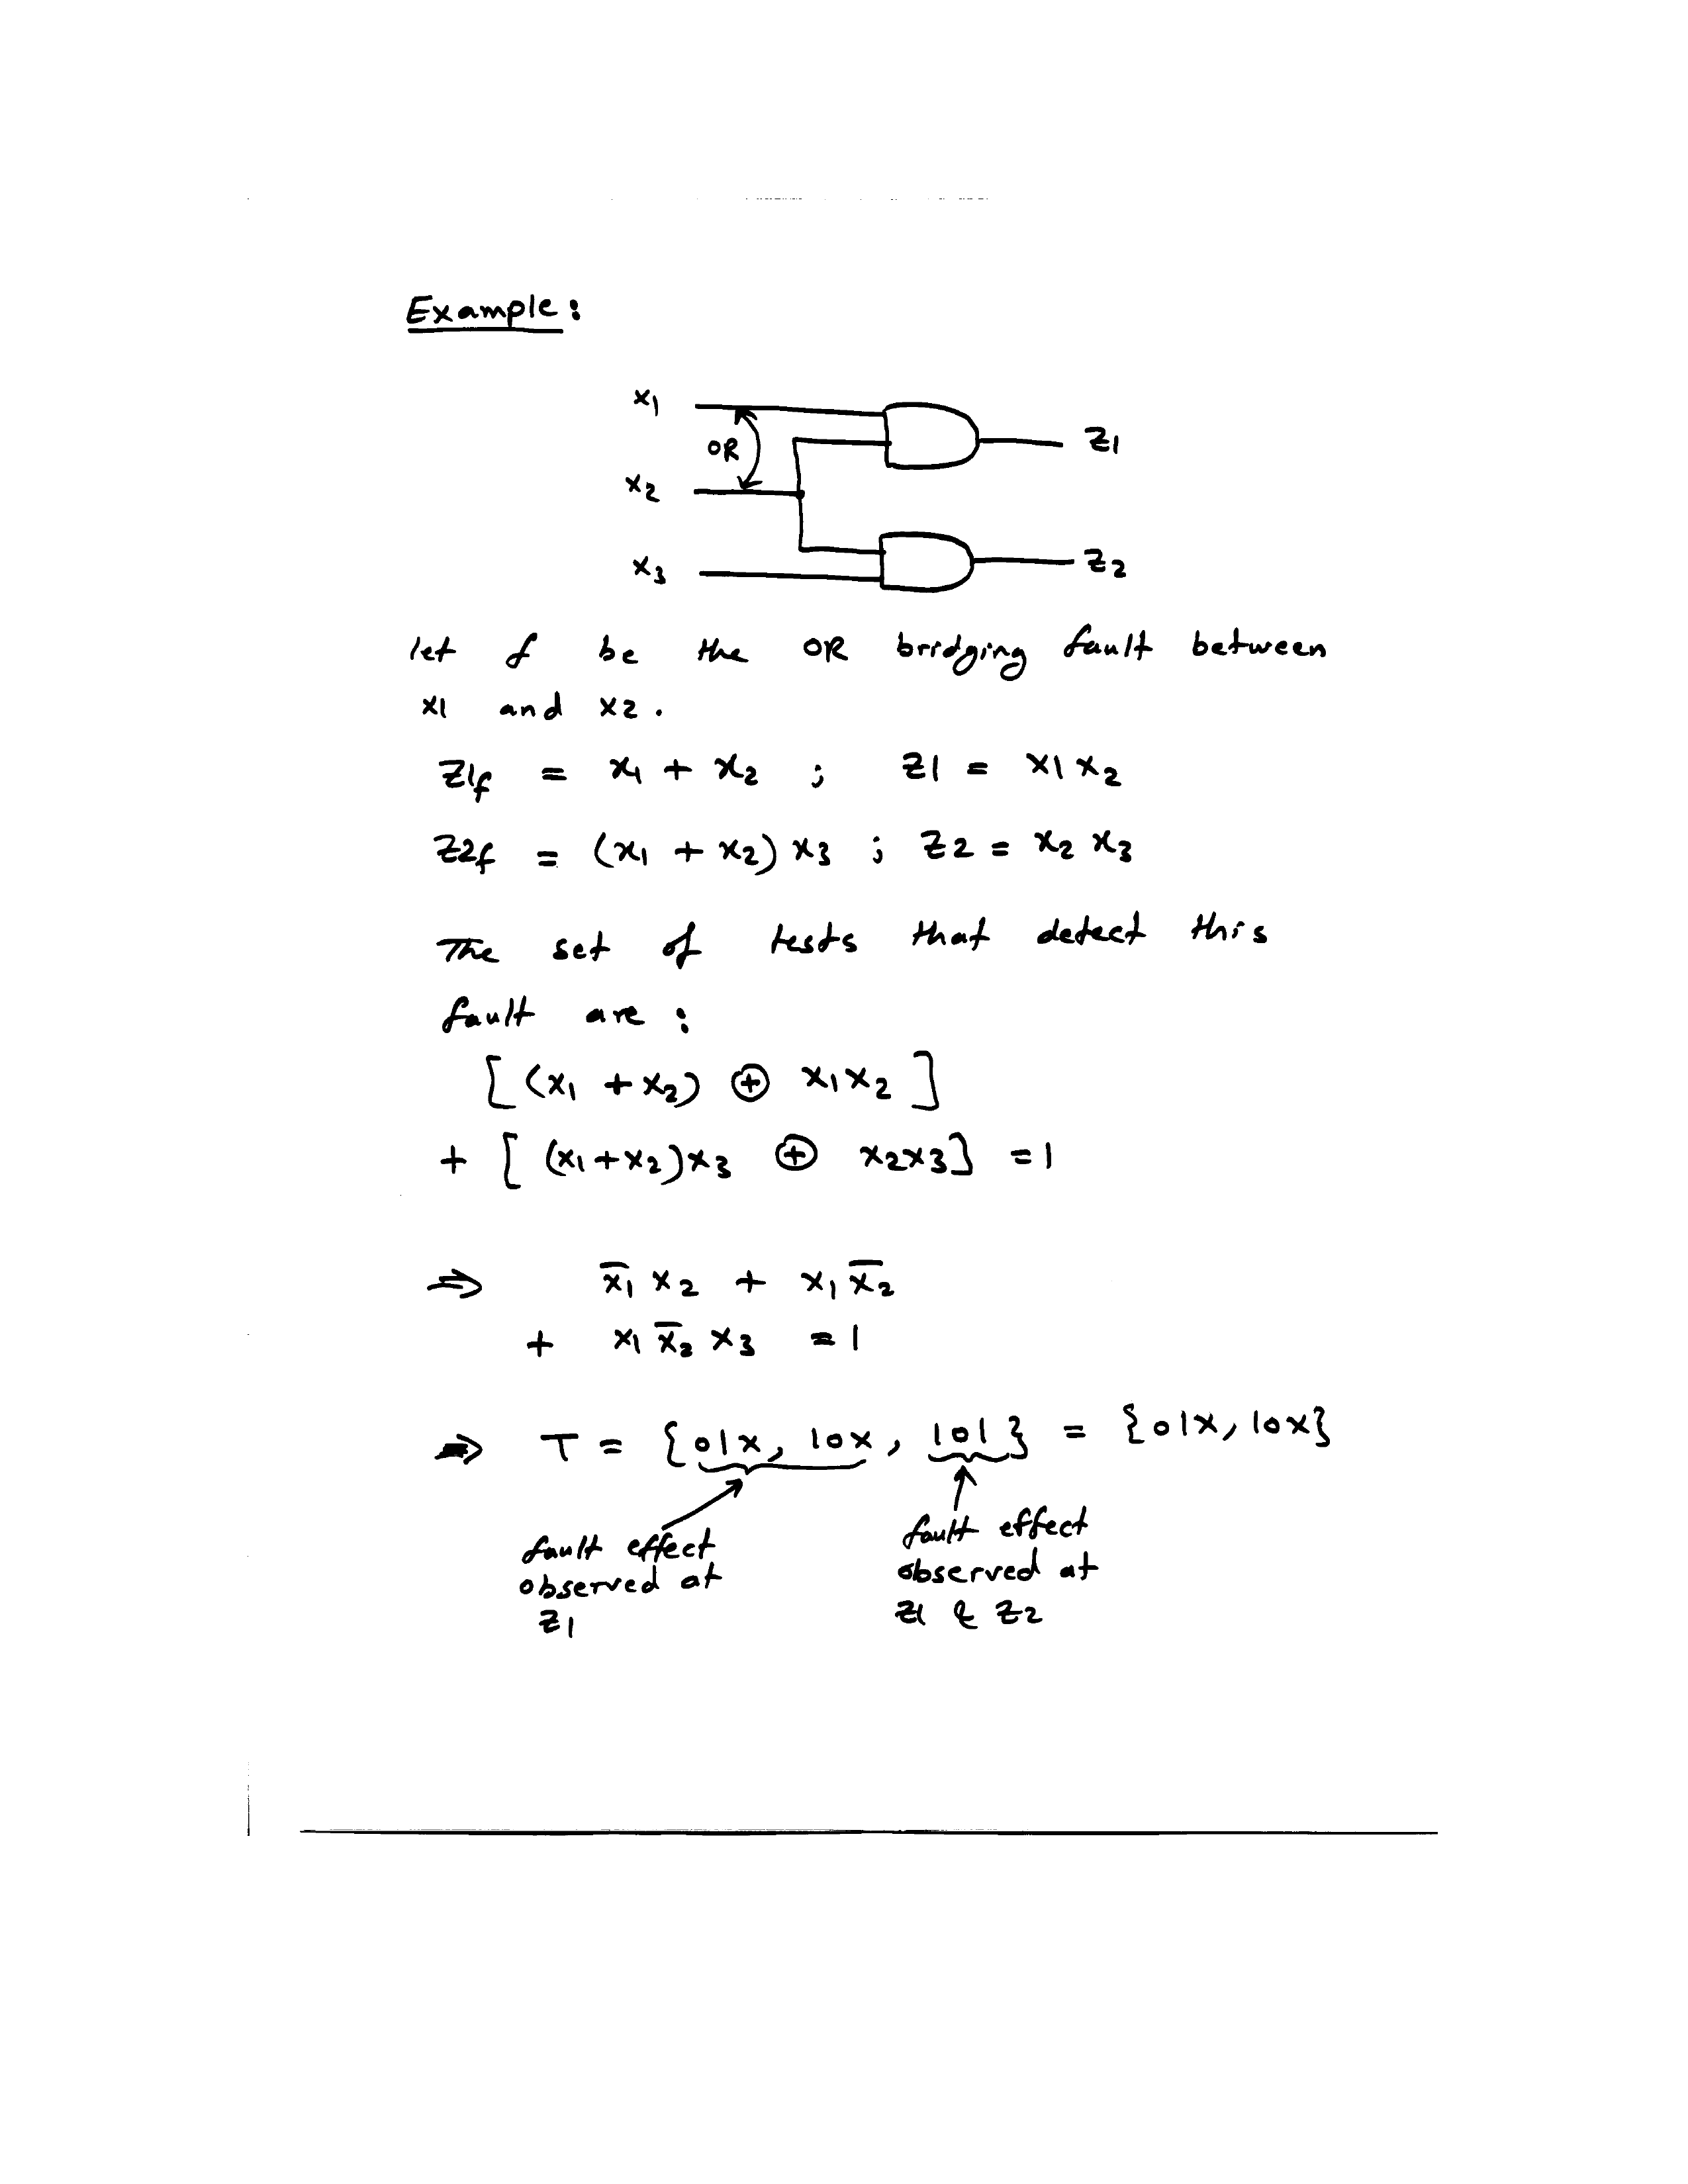 Example:
x1
OR
z1
x2
x3
z2
let f be the OR bridging fault between
x1 and x2.
z1f = x1 + x2 ; z1 = x1 x2
z2f = (x1 + x2) x3 ; z2 = x2 x3
The set of tests that detect this
fault are :
[ (x1 + x2) ⊕ x1x2 ]
+ [ (x1+x2)x3 ⊕ x2x3] = 1
⇒ x̅1 x2 + x1 x̅2
+ x1 x̅2 x3 = 1
⇒ T = {01x, 10x, 101} = {01x, 10x}
fault effect
observed at
z1
fault effect
observed at
z1 & z2